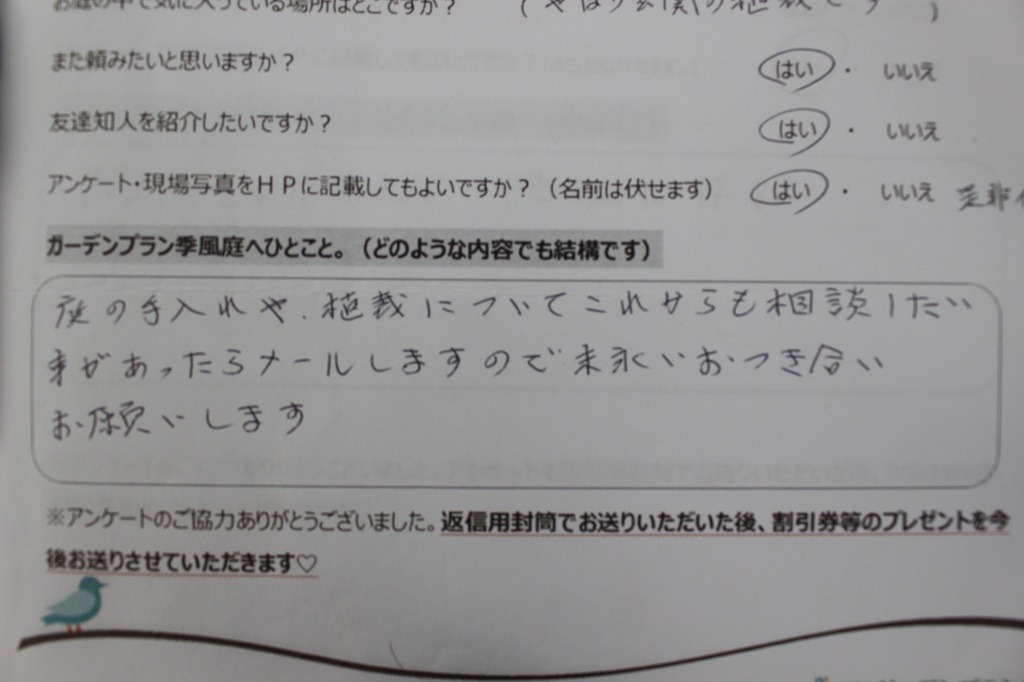 お庭の中で気に入っている場所はどこですか？ （やはり玄関の植栽です）
また頼みたいと思いますか？ はい ・ いいえ
友達知人を紹介したいですか？ はい ・ いいえ
アンケート・現場写真をＨＰに記載してもよいですか？（名前は伏せます） はい ・ いいえ
ガーデンプラン季風庭へひとこと。（どのような内容でも結構です）
庭の手入れや、植裁についてこれからも相談したい
事があったらメールしますので末永いおつき合い
お願いします
※アンケートのご協力ありがとうございました。返信用封筒でお送りいただいた後、割引券等のプレゼントを今
後お送りさせていただきます♡